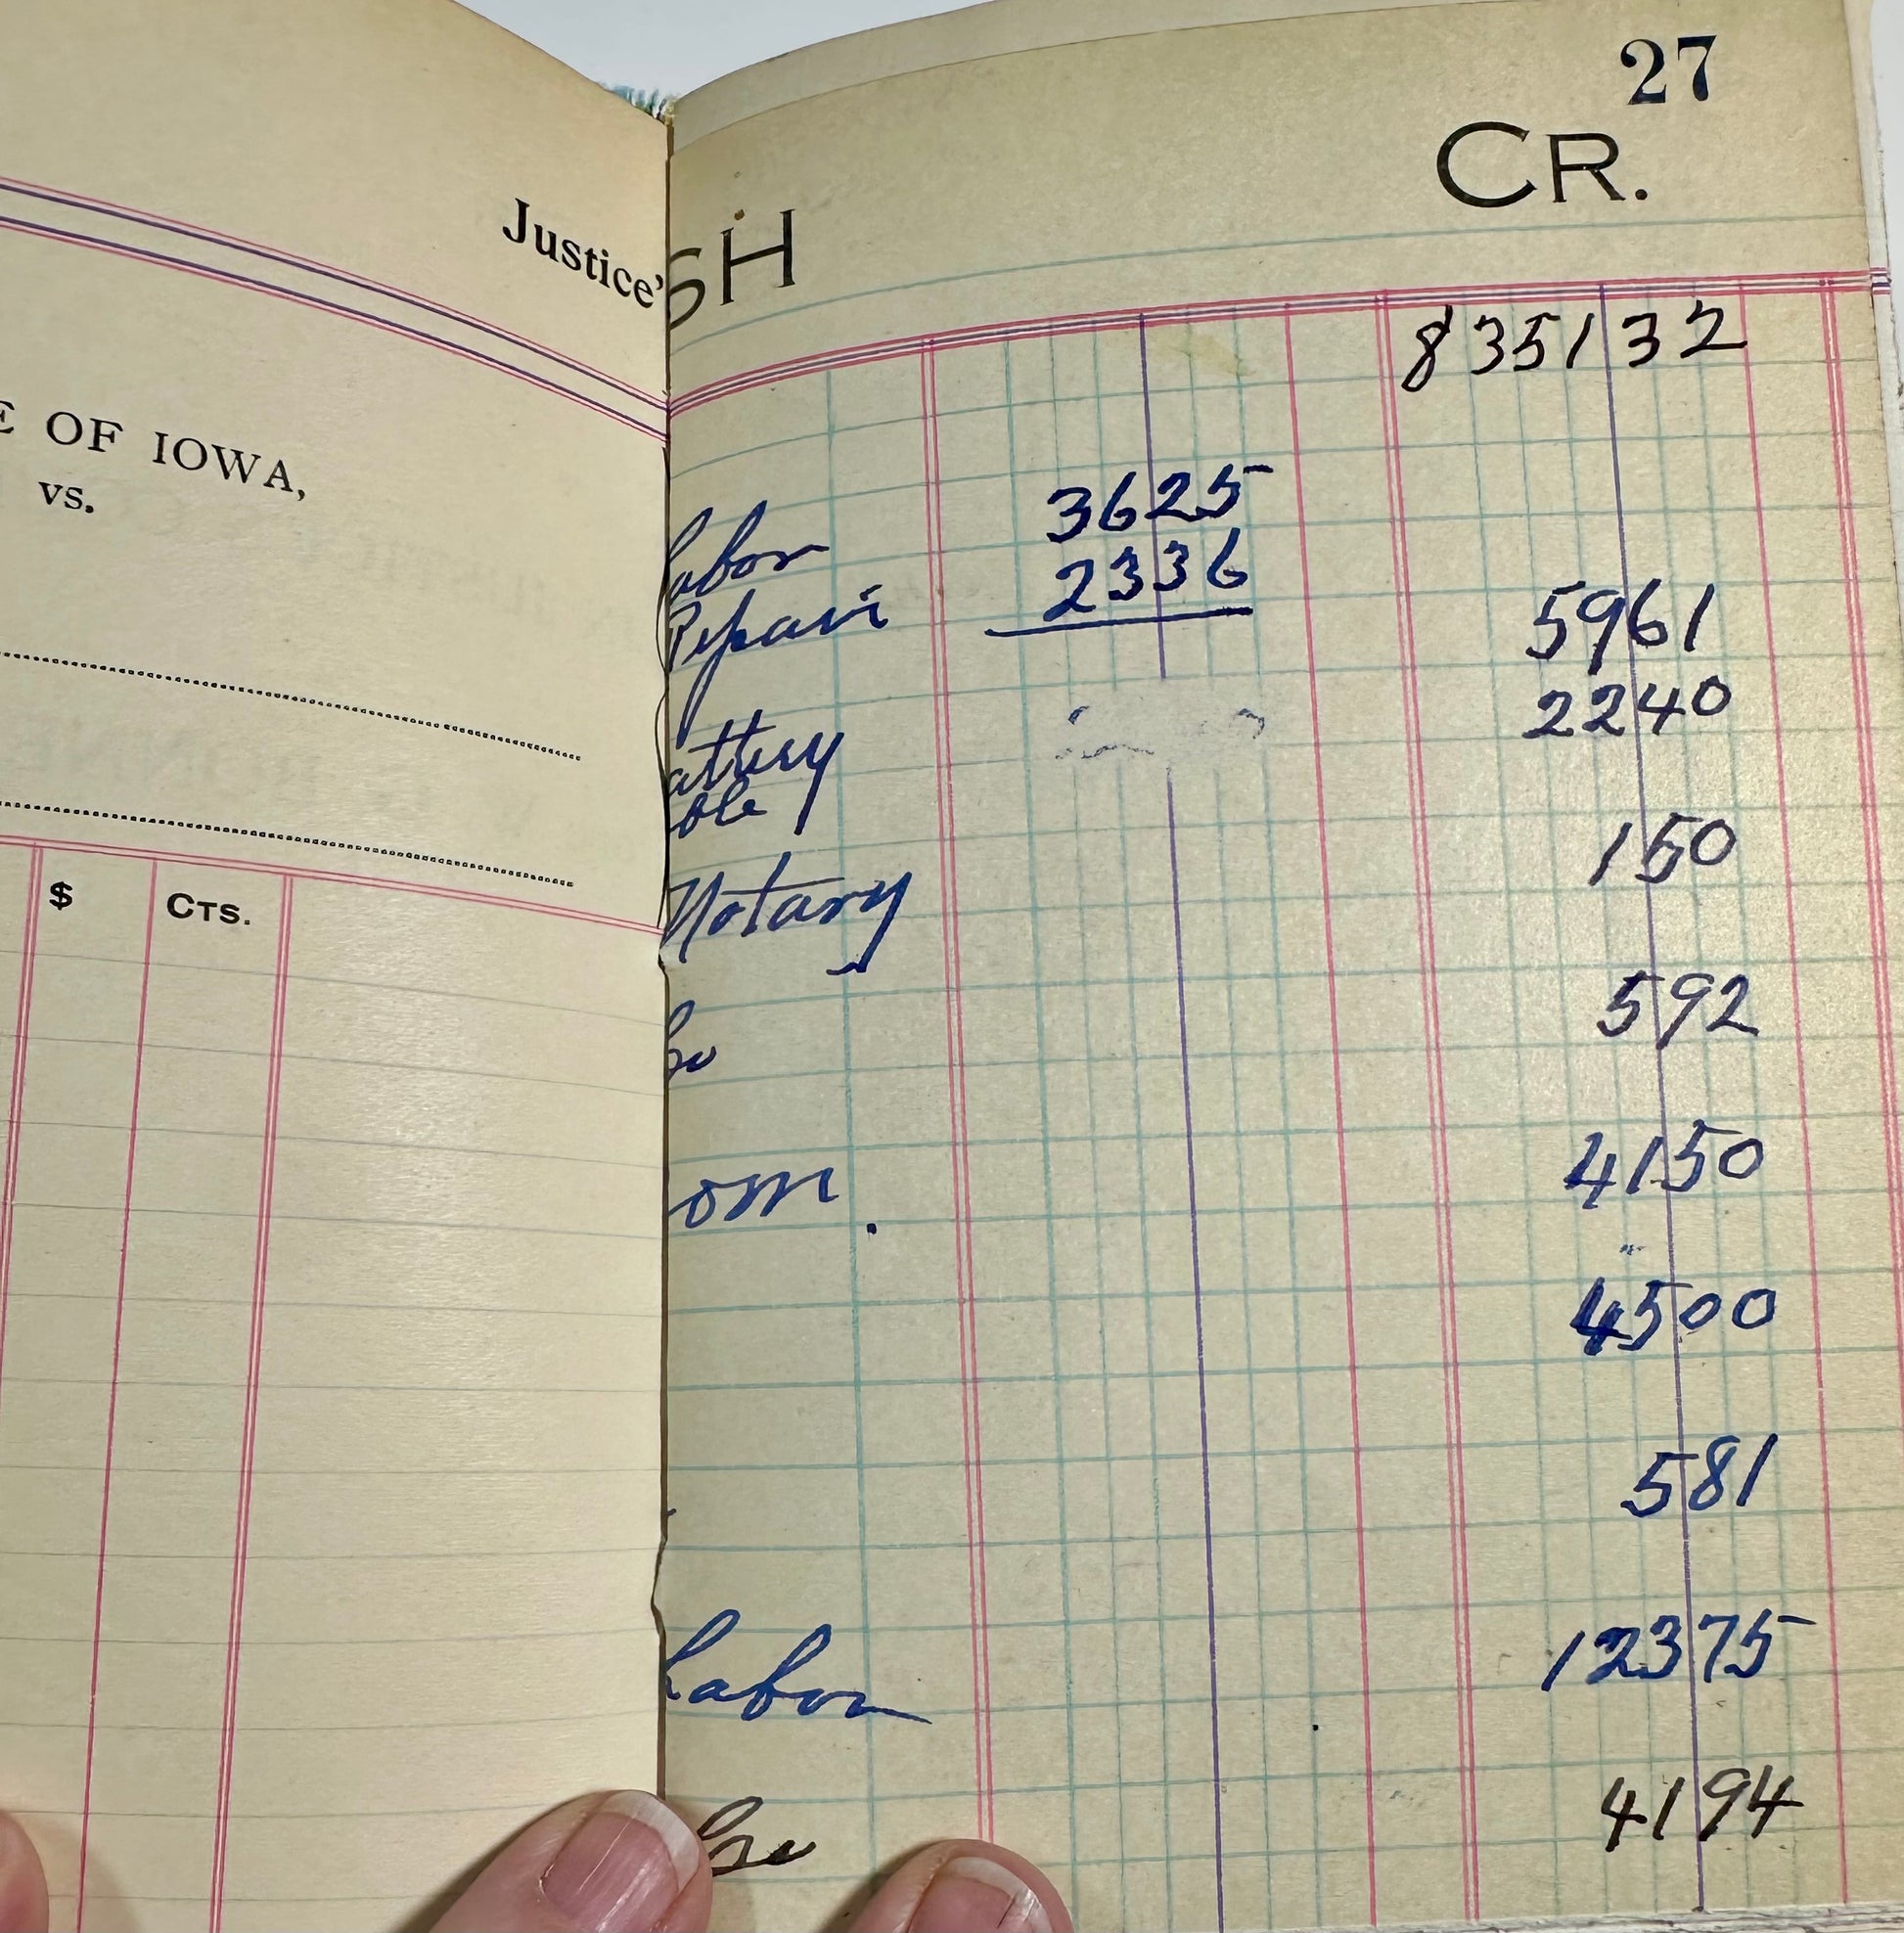 Justice'
E OF IOWA,
vs.
$ CTS.
27
CR.
SH
8351 32
Labor 36 25
Repair 23 36 59 61
attery 22 40
ole
Notary 1 50
5 92
om. 41 50
45 00
5 81
Labor 123 75
41 94